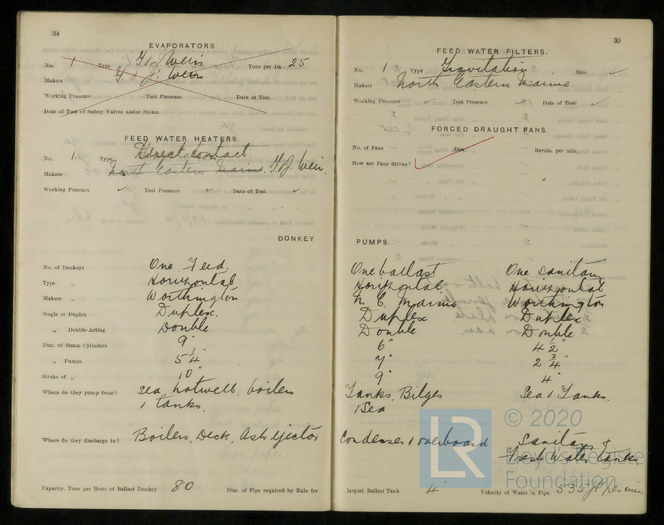 34
EVAPORATORS
No. 1 Type G & J Weir Tons per Da 25
Makers G & J. Weir
Working Pressure Test Pressure Date of Test
Date of Test of Safety Valves under Steam
FEED WATER HEATERS.
No. 1 Type Direct Contact
Makers North Eastern Marine, G & J. Weir.
Working Pressure ✓ Test Pressure ✓ Date of Test ✓
DONKEY
No. of Donkeys One Feed.
Type „ Horizontal
Makers „ Worthington
Single or Duplex Duplex.
„ Double-Acting Double
Diar. of Steam Cylinders 9"
„ Pumps 5 1/4"
Stroke of „ 10"
Where do they pump from? Sea, hotwell, boilers
& tanks.
Where do they discharge to? Boilers, Deck, Ash ejector
Capacity, Tons per Hour of Ballast Donkey 80 Diar. of Pipe required by Rule for
35
FEED WATER FILTERS.
No. 1 Type Gravitation Size ✓
Makers North Eastern Marine
Working Pressure ✓ Test Pressure Date of Test ✓
FORCED DRAUGHT FANS.
No. of Fans Diar. Revols. per min.
How are Fans driven?
PUMPS.
One ballast One sanitary
Horizontal Horizontal
N. E. Marine Worthington
Duplex Duplex.
Double Double
6" 4 1/2"
7" 2 3/4"
9" 4"
Tanks, Bilges Sea & Tanks.
& Sea
Condenser & overboard Sanitary &
Fresh Water tanks
largest Ballast Tank 4 Velocity of Water in Pipe 535 ft per min
LR
© 2020
Lloyd's Register
Foundation